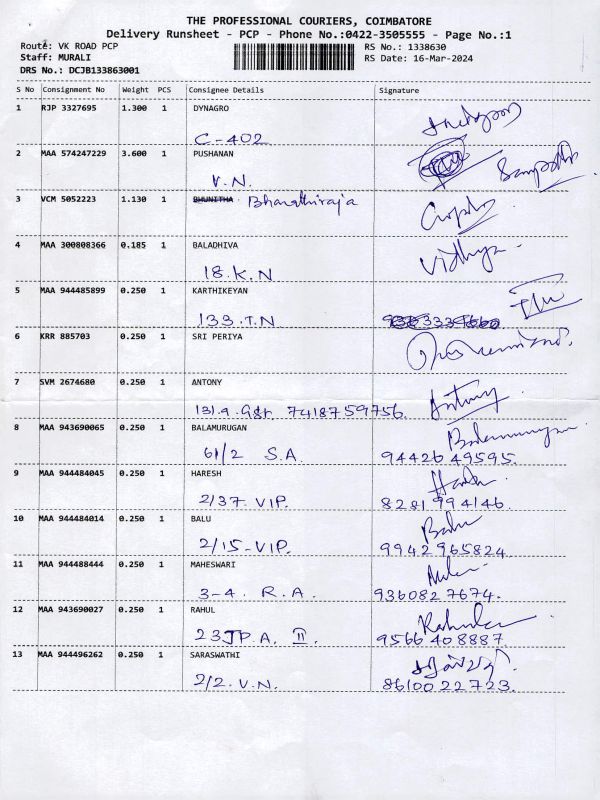 THE PROFESSIONAL COURIERS, COIMBATORE
Delivery Runsheet - PCP - Phone No.:0422-3505555 - Page No.:1
Route: VK ROAD PCP
RS No.: 1338630
Staff: MURALI
RS Date: 16-Mar-2024
DRS No.: DCJB133863001
S No Consignment No Weight PCS Consignee Details Signature
1 RJP 3327695 1.300 1 DYNAGRO
C-402
2 MAA 574247229 3.600 1 PUSHANAN
V.N. Sampath
3 VCM 5052223 1.130 1 BHUNITHA Bharathiraja
4 MAA 300808366 0.185 1 BALADHIVA Vidhya
18.K.N
5 MAA 944485899 0.250 1 KARTHIKEYAN
133.T.N
6 KRR 885703 0.250 1 SRI PERIYA
7 SVM 2674680 0.250 1 ANTONY Antony
131.9. 7418759756.
8 MAA 943690065 0.250 1 BALAMURUGAN Balamurugan
61/2 S.A. 94426 49595.
9 MAA 944484045 0.250 1 HARESH
2/37. VIP. 8281 994146.
10 MAA 944484014 0.250 1 BALU Balu
2/15-VIP. 9942965824.
11 MAA 944488444 0.250 1 MAHESWARI
3-4. R.A. 9360827674.
12 MAA 943690027 0.250 1 RAHUL
23JP A. II. 9566 408887
13 MAA 944496262 0.250 1 SARASWATHI
2/2. V.N. 8610022723.